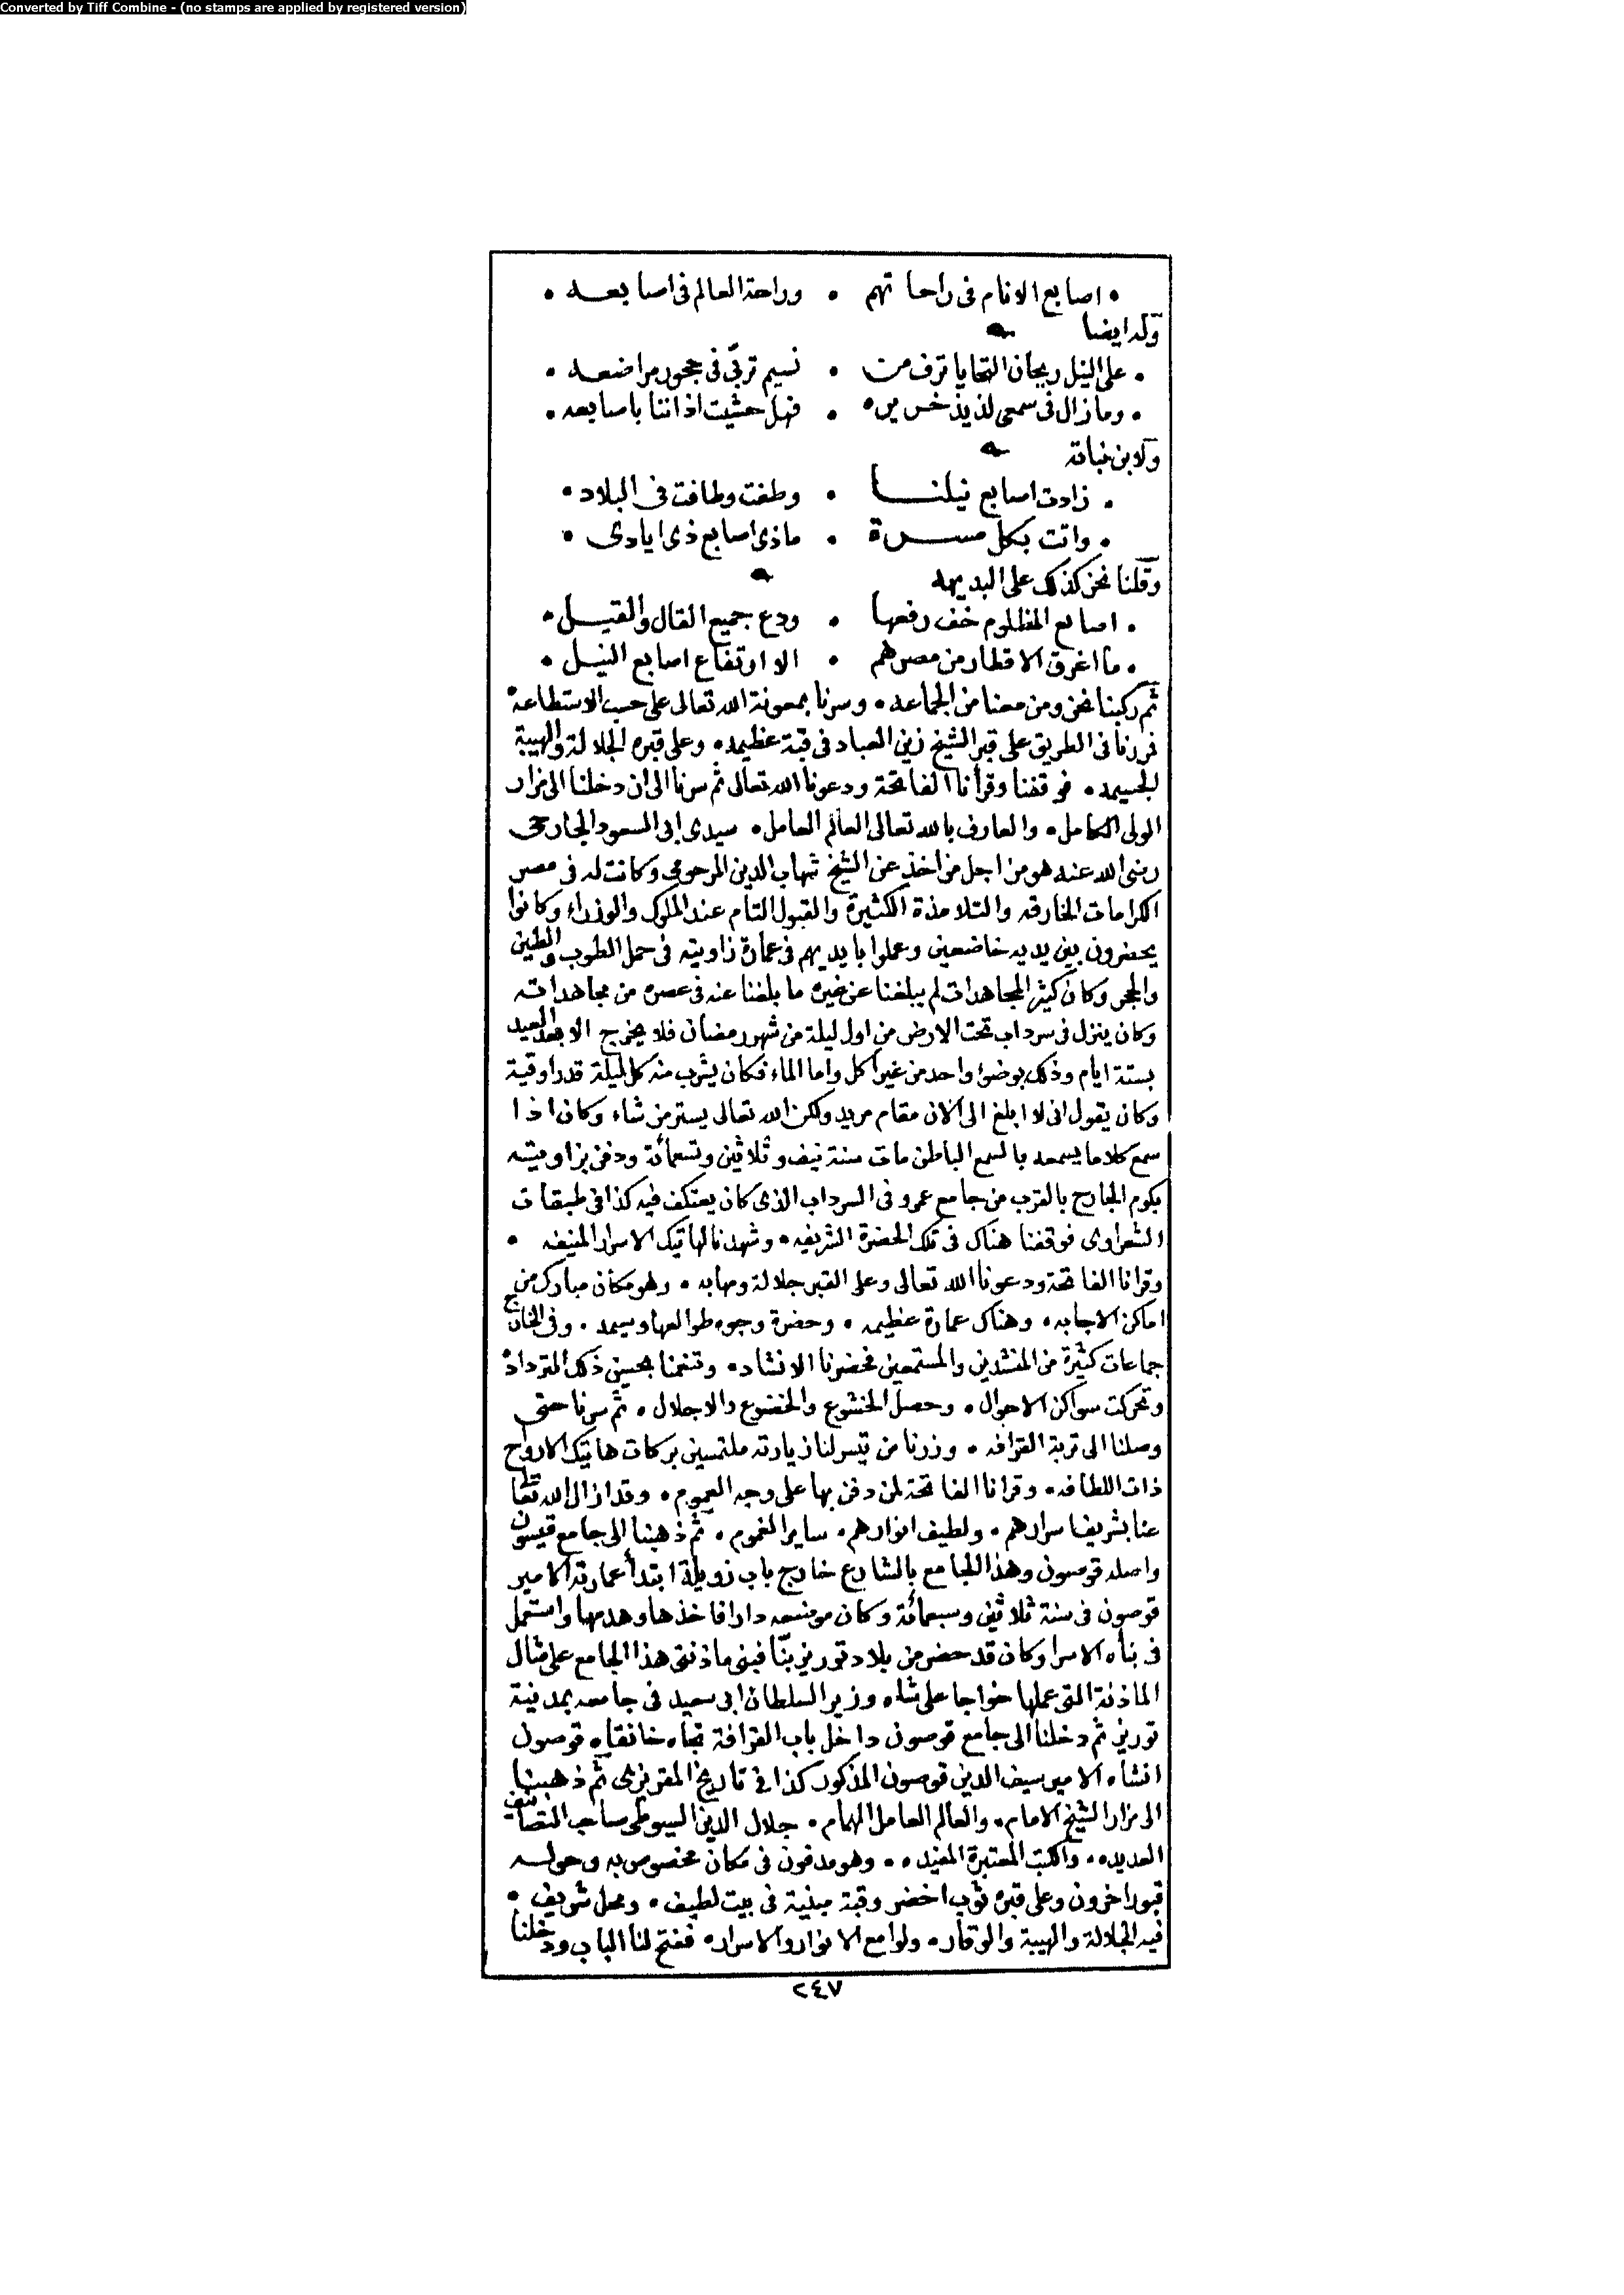 Converted by Tiff Combine - (no stamps are applied by registered version)
• اصابع الانام فى راحاتهم • وراحة العالم فى اصابعه •
وله ايضا
• على النيل ريحان التحايا ترف من • نسيم تربّى فى حجور مراضعه •
• وما زال فى سمعى لذيذ خريره • فهل حشيت اذاننا باصابعه •
ولابن نباتة
• زادت اصابع نيلنا • وطغت وطافت فى البلاد •
• واتت بكل مسرة • ماذى اصابع ذى ايادى •
وقلنا نحن كذلك على البديهه
• اصابع المظلوم خف رفعها • ودع جميع القال والقيل •
• ما اغرق الاقطار من مصرهم • الا ارتفاع اصابع النيل •
ثم ركبنا نحن ومن معنا من الجماعه • وسرنا بمعونة الله تعالى على حسب الاستطاعة
فمررنا فى الطريق على قبر الشيخ زين العباد فى قبة عظيمه • وعلى قبره الجلالة والهيبة
الجسيمه • فوقفنا وقرأنا الفاتحة ودعونا الله تعالى ثم سرنا الى ان دخلنا الى مزار
الولى الكامل • والعارف بالله تعالى العالم العامل • سيدى ابى السعود الجارحى
رضى الله عنه هو من اجل من اخذ عن الشيخ شهاب الدين المرحومى وكانت له فى مصر
الكرامات الخارقه والتلامذة الكثيرة والقبول التام عند الملوك والوزراء وكانوا
يحضرون بين يديه خاضعين وعملوا بايديهم فى عمارة زاويته فى حمل الطوب والطين
والحجر وكان كثير المجاهدات لم يبلغنا عن غيره ما بلغنا عنه فى عصره من مجاهداته
وكان ينزل فى سرداب تحت الارض من اول ليلة من شهر رمضان فلا يخرج الا بعد العيد
بستة ايام وذلك بوضوء واحد من غير اكل واما الماء فكان يشرب منه كل ليلة قدر اوقية
وكان يقول انى لا ابلغ الى الان مقام مريد ولكن الله تعالى يستر من شاء وكان اذا
سمع كلاما يسمعه بالسمع الباطن مات سنة نيف وثلاثين وتسعمائة ودفن بزاويته
بكوم الجارح بالقرب من جامع عمرو فى السرداب الذى كان يعتكف فيه كذا فى طبقات
الشعراوى فوقفنا هناك فى تلك الحضرة الشريفه • وشهدنا لهاتيك الاسرار المنيفه •
وقرانا الفاتحة ودعونا الله تعالى وعلى القبر جلالة ومهابه • وهو مكان مبارك من
اماكن الاجابه • وهناك عمارة عظيمه • وحضرة وجوه طوالعها وسيمه • وفى الخارج
جماعات كثيرة من المنشدين والمستمعين فحضرنا الانشاد • وتنغمنا بحسين ذلك الترداد
وتحركت سواكن الاحوال • وحصل الخشوع والخضوع والاجلال • ثم سرنا حتى
وصلنا الى تربة القرافه • وزرنا من تيسر لنا زيارته ملتمسين بركات هاتيك الارواح
ذات اللطافه • وقرانا الفاتحة لمن دفن بها على وجه العموم • وقد ازال الله تعالى
عنا بشريف اسرارهم • ولطيف انوارهم • ساير الغموم • ثم ذهبنا الى جامع قيسون
واصله قوصون وهذا الجامع بالشارع خارج باب زويلة ابتدأ عمارته الامير
قوصون فى سنة ثلاثين وسبعمائة وكان موضعه دارا فاخذها وهدمها واستعمل
فى بناه الاسرا وكان قد حضر من بلاد توريز بنّا فبنى ماذنتى هذا الجامع على مثال
الماذنة التى عملها خواجا على شاه وزير السلطان ابى سعيد فى جامعه بمدينة
توريز ثم دخلنا الى جامع قوصون داخل باب القرافة تجاه خانقاه قوصون
انشاه الامير سيف الدين قوصون المذكور كذا فى تاريخ المقريزى ثم ذهبنا
الى مزار الشيخ الامام • والعالم العامل الهمام • جلال الدين السيوطى صاحب التصانيف
العديده • والكتب المعتبرة المفيده • وهو مدفون فى مكان مخصوص به وحوله
قبور اخرون وعلى قبره ثوب اخضر وقبة مبنية فى بيت لطيف • ومحل شريف •
فيه الجلالة والهيبة والوقار • ولوامع الانوار والاسرار • ففتح لنا الباب ودخلنا
٢٤٧